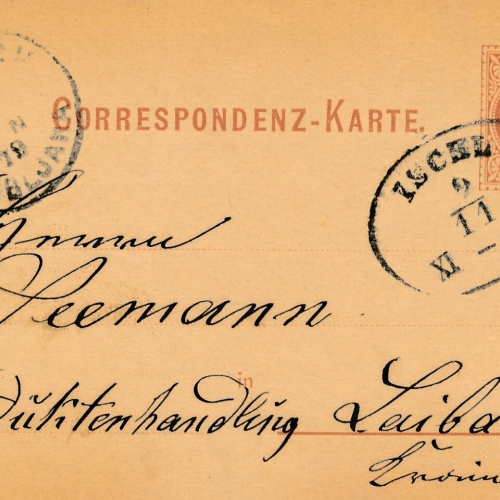 CORRESPONDENZ-KARTE.
ISCHL
9
11
XI
LJANA
Herrn
Seemann
in
duktenhandlung Laiba
Krain